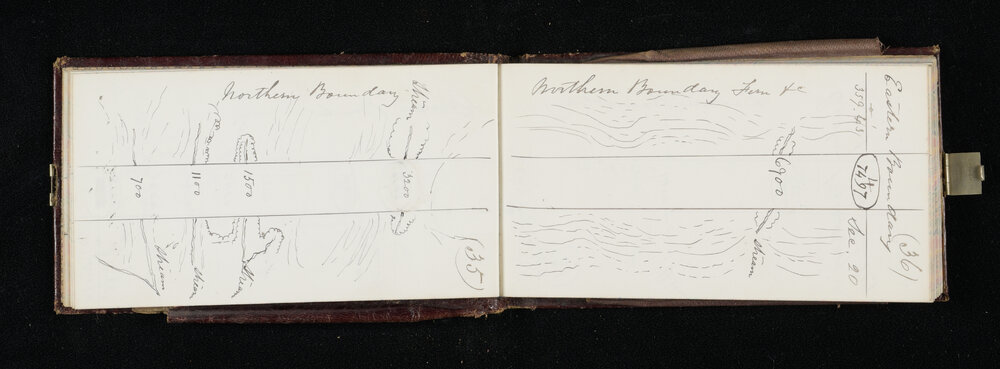 Northern Boundary
Stream
3200
1500
1100
700
Stream
Stream
Stream
(35)
Northern Boundary Fern &c
6900
Stream
Eastern Boundary
(36)
7467
Sec. 20